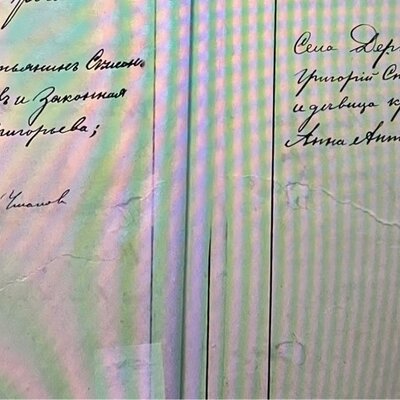 тьянинъ Симон
въ и Законная
ригорьева;
Ушаков
Села Дер
Григорій Сп
и дѣвица к
Анна Ант